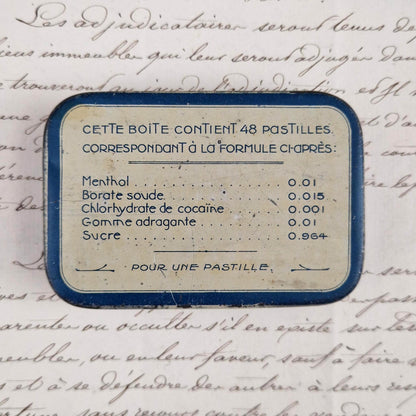 Les adjudicataires seront tenus
immeubles qui leur seront adjugés dans
CETTE BOITE CONTIENT 48 PASTILLES
CORRESPONDANT À LA FORMULE CI-APRÈS:
Menthol . . . . . . . . . . . . . . . . 0.01
Borate soude . . . . . . . . . . . . . 0.015
Chlorhydrate de cocaïne . . . . . . 0.001
Gomme adragante . . . . . . . . . . 0.01
Sucre . . . . . . . . . . . . . . . . . 0.964
POUR UNE PASTILLE
ou occulter s'il en existe sur
immeubler, ou en leur faveur, sauf à faire
et à se défendre des autres à leurs